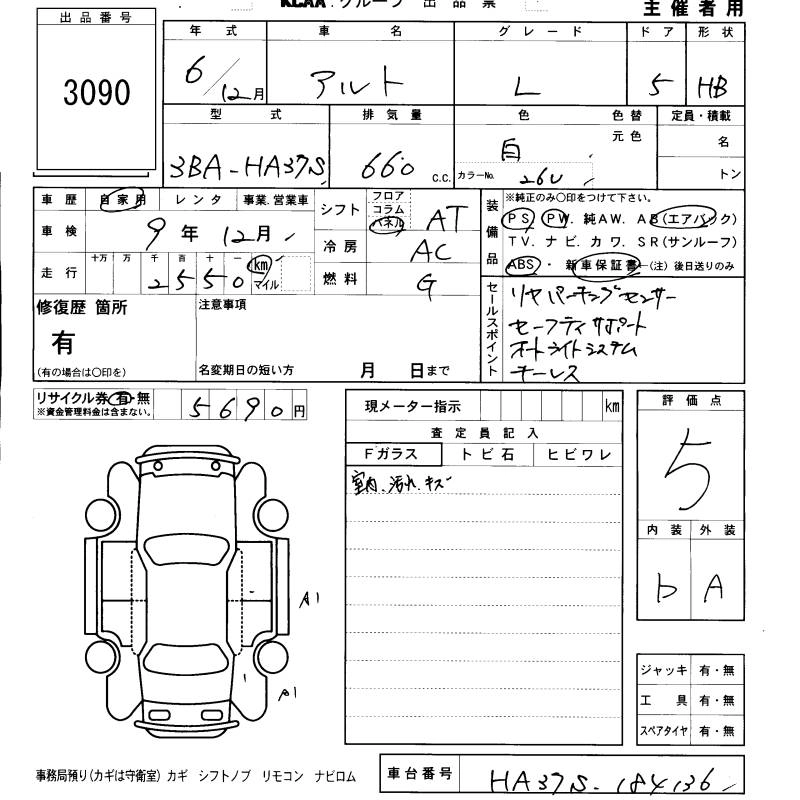 KCAA.グループ 出品票
主催者用
出品番号
3090
年式 車名 グレード ドア 形状
6/12月 アルト L 5 HB
型式 排気量 色 色替 定員・積載
3BA-HA37S 660 c.c. 白 元色 名
カラーNo. 26U トン
車歴 自家用 レンタ 事業.営業車
車検 9年 12月
走行 十万 万 千 百 十 一 km マイル
2 5 5 0
シフト フロア コラム パネル AT
冷房 AC
燃料 G
装備品
※純正のみ〇印をつけて下さい。
PS PW. 純AW. AB(エアバック)
TV. ナビ. カワ. SR(サンルーフ)
ABS・新車保証書(注)後日送りのみ
セールスポイント
リヤパーキングセンサー
セーフティサポート
オートライトシステム
キーレス
修復歴 箇所
有
(有の場合は〇印を)
注意事項
名変期日の短い方 月 日まで
リサイクル券 有・無
※資金管理料金は含まない。
5690円
現メーター指示 km
査定員記入
Fガラス トビ石 ヒビワレ
室内.汚れ.キズ
評価点
5
内装 外装
b A
A1
A1
ジャッキ 有・無
工具 有・無
スペアタイヤ 有・無
事務局預り(カギは守衛室) カギ シフトノブ リモコン ナビロム
車台番号 HA37S-184136